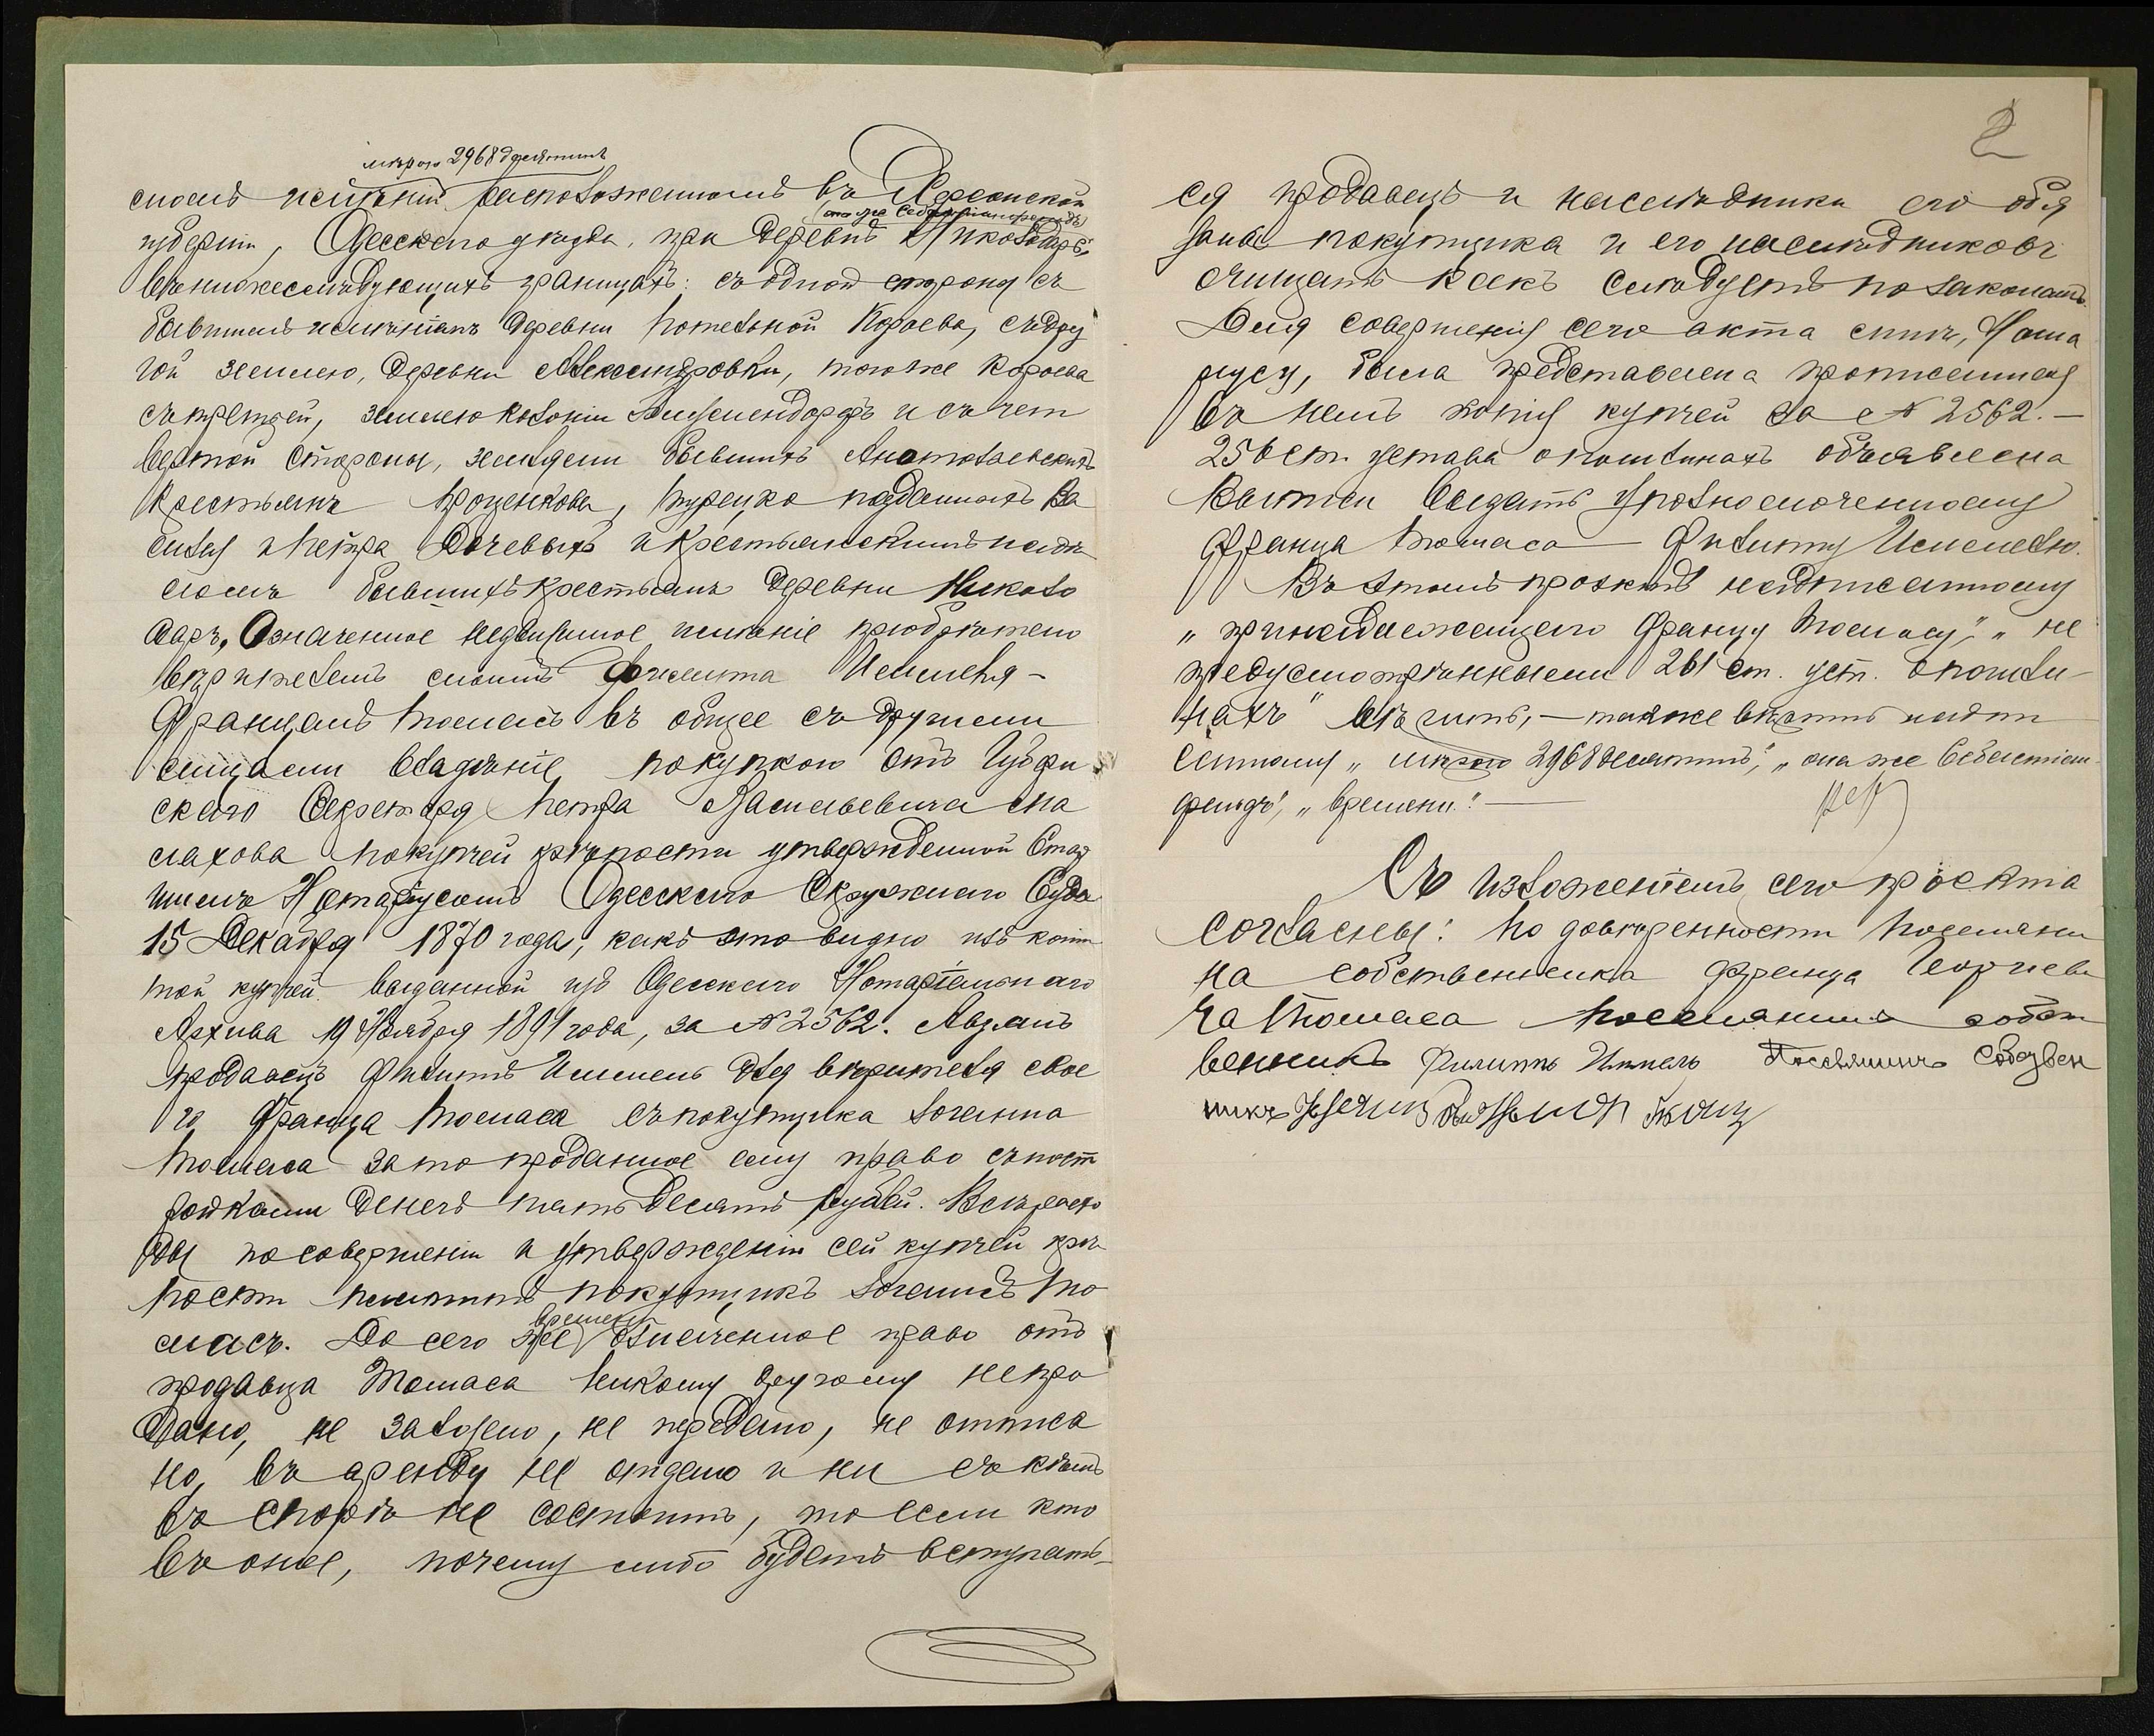 мѣрою 2968 десятинъ
сномъ имѣніи расположенномъ въ Херсонской
(она же Себастіанфельдъ)
губерніи, Одесскаго уѣзда, при деревнѣ Николодаръ,
въ нижеслѣдующихъ границахъ: съ одной стороны съ
бывшимъ имѣніемъ деревни Кораева, съ дру
гой землею, деревни Александровки, тоже Кораева
съ третьей, землею колоніи и съ чет
вертой стороны, землями бывшихъ Анатольевскихъ
крестьянъ Проценкова, турецко подданныхъ Ва
силія и Петра и крестьянскимъ надѣ
ломъ бывшихъ крестьянъ деревни Николо
даръ. Означенное недвижимое имѣніе пріобрѣтено
вѣрителемъ Филиппа Иммеля –
Францомъ Томасъ въ общее съ другими
лицами владѣніе покупкою отъ Губерн
скаго Секретаря Петра Васильевича
по купчей крѣпости утвержденной Стар
шимъ Нотаріусомъ Одесскаго Окружнаго Суда
15 Декабря 1870 года, какъ это видно изъ копіи
той купчей выданной изъ Одесскаго Нотаріальнаго
Архива 19 Ноября 1891 года, за № 2562. А взялъ
продавецъ Филиппъ Иммель для вѣрителя свое
го Франца Томаса съ покупщика Іоганна
Томаса за то проданное ему право съ пост
ройками денегъ пять десятъ рублей. Всѣ расхо
ды по совершенію и утвержденію сей купчей крѣ
пости платитъ покупщикъ Іоганнъ То
времени
масъ. До сего же означенное право отъ
продавца Томаса никому другому не про
дано, не заложено, не передано, не отписа
но, въ аренду не отдано и ни съ кѣмъ
въ спорѣ не состоитъ, то если кто
въ оное, почему либо будетъ вступать-
2
ся продавецъ и наслѣдники его обя
заны покупщика и его наслѣдниковъ
очищать какъ слѣдуетъ по законамъ.
Для совершенія сего акта мнѣ, Нота
ріусу, была представлена прописанная
въ немъ копія купчей за № 2562. –
256 ст. устава о пошлинахъ объявлена
Выпись выдать уполномоченному
Франца Томаса – Филиппу Иммелю.
Въ этомъ проэктѣ надписанному
„принадлежащаго Францу Томасу", „не
предусмотрѣнныхъ 261 ст. уст. о пошли-
нахъ" вѣрить, – также вѣрить надпи
санному „мѣрою 2968 десятинъ", „она же Себастіан-
фельдъ", „времени". –
Съ изложеніемъ сего проэкта
согласны: По довѣренности поселяни
на собственника Франца Георгіеви
ча Томаса поселянинъ собст
венникъ Филиппъ Иммель Поселянинъ Собствен
никъ